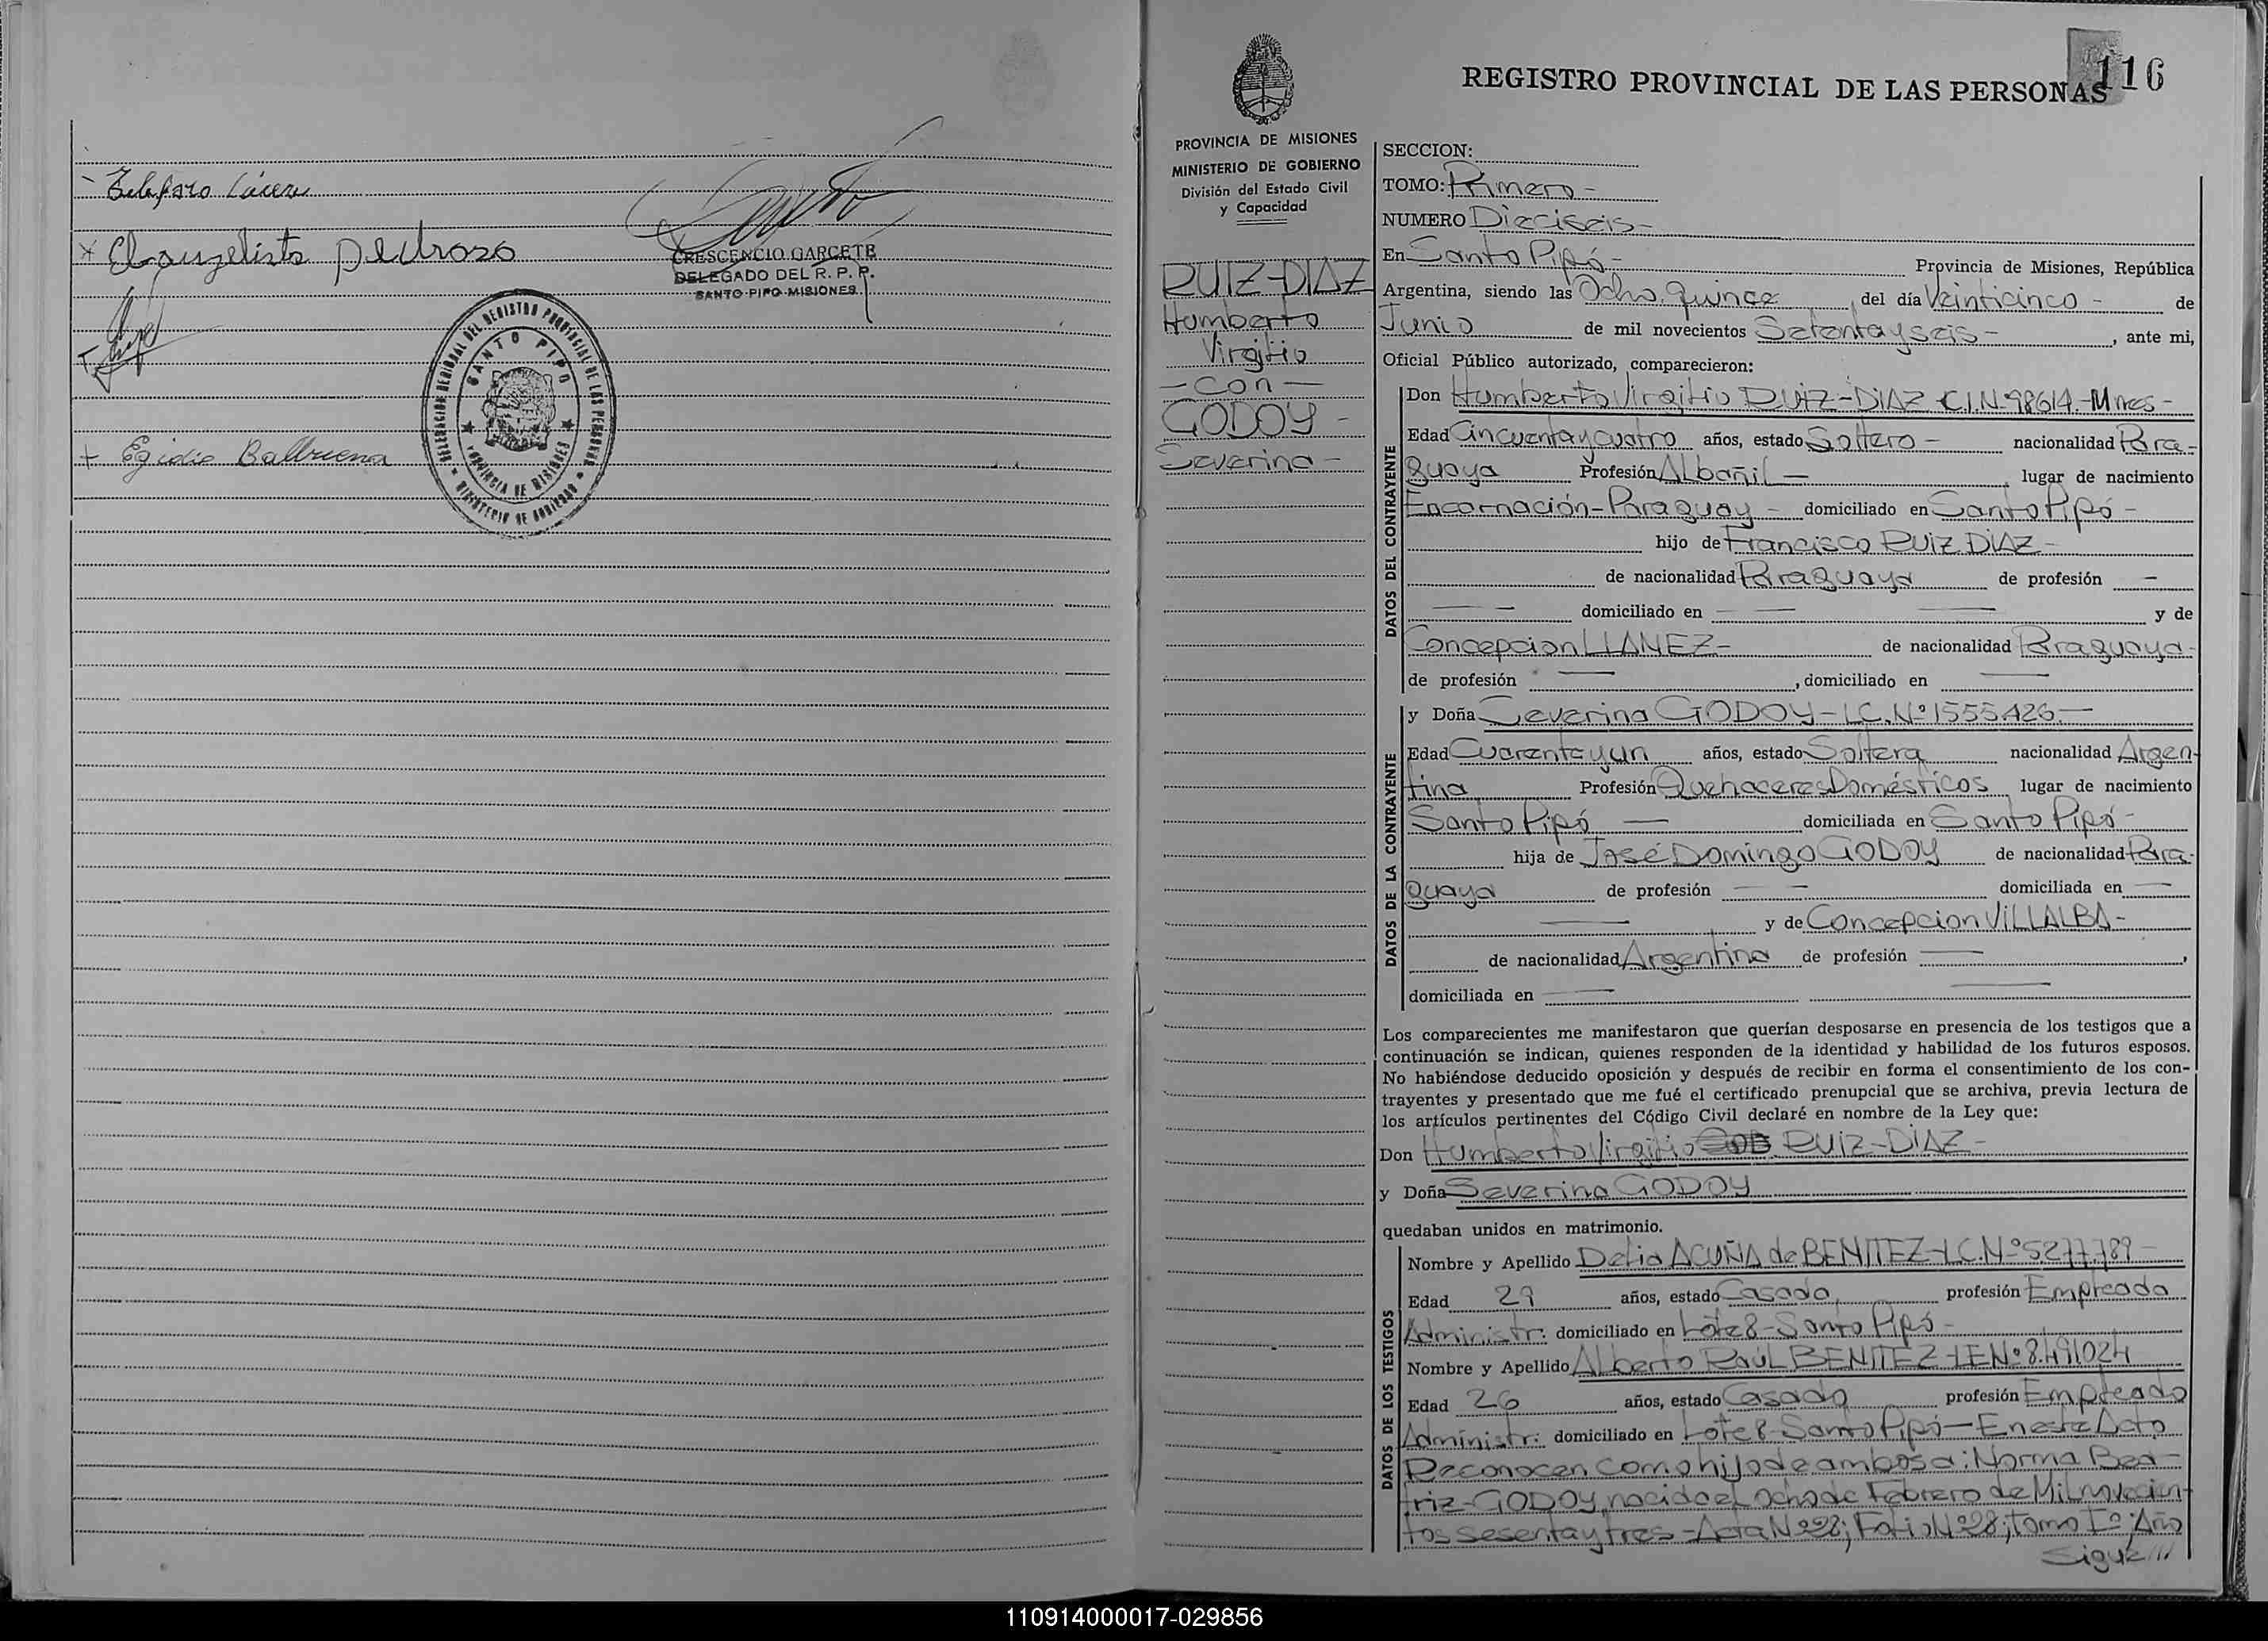 Evangelista Pedrozo
CRESCENCIO GARCETE
DELEGADO DEL R. P. P.
SANTO PIPO MISIONES
DELEGACION REGIONAL DEL REGISTRO PROVINCIAL DE LAS PERSONAS
MINISTERIO DE GOBIERNO
SANTO PIPO
PROVINCIA DE MISIONES
+ Egidio Balbuena
REGISTRO PROVINCIAL DE LAS PERSONAS
116
PROVINCIA DE MISIONES
MINISTERIO DE GOBIERNO
División del Estado Civil
y Capacidad
RUIZ-DIAZ
Humberto
Virgilio
- con -
GODOY -
Severina -
SECCION:
TOMO: Primero -
NUMERO Dieciseis -
En Santo Pipó - Provincia de Misiones, República
Argentina, siendo las Ocho, quince, del día Veinticinco - de
Junio de mil novecientos Setentayseis -, ante mi,
Oficial Público autorizado, comparecieron:
DATOS DEL CONTRAYENTE
Don Humberto Virgilio RUIZ-DIAZ C.I.N. 98614.-Mnes -
Edad Cincuentaycuatro años, estado Soltero - nacionalidad Para-
guaya Profesión Albañil - lugar de nacimiento
Encarnación-Paraguay - domiciliado en Santo Pipó -
hijo de Francisco RUIZ DIAZ -
de nacionalidad Paraguaya de profesión -
domiciliado en — — y de
Concepcion LLANEZ - de nacionalidad Paraguaya -
de profesión —, domiciliado en —
DATOS DE LA CONTRAYENTE
y Doña Severina GODOY - L.C. Nº 1555.426.—
Edad Cuarentayun años, estado Soltera nacionalidad Argen-
tina Profesión Quehaceres Domésticos lugar de nacimiento
Santo Pipó — domiciliada en Santo Pipó -
hija de José Domingo GODOY de nacionalidad Para-
guaya de profesión — — domiciliada en —
— y de Concepcion VILLALBA -
de nacionalidad Argentina de profesión —,
domiciliada en — —
Los comparecientes me manifestaron que querían desposarse en presencia de los testigos que a
continuación se indican, quienes responden de la identidad y habilidad de los futuros esposos.
No habiéndose deducido oposición y después de recibir en forma el consentimiento de los con-
trayentes y presentado que me fué el certificado prenupcial que se archiva, previa lectura de
los artículos pertinentes del Código Civil declaré en nombre de la Ley que:
Don Humberto Virgilio RUIZ-DIAZ -
y Doña Severina GODOY
quedaban unidos en matrimonio.
DATOS DE LOS TESTIGOS
Nombre y Apellido Delia ACUÑA de BENITEZ - L.C. Nº 5.277.789 -
Edad 29 años, estado Casada profesión Empleada
Administr: domiciliado en Lote 8 - Santo Pipó -
Nombre y Apellido Alberto Raúl BENITEZ - LE Nº 8.491.024
Edad 26 años, estado Casado profesión Empleado
Administr: domiciliado en Lote 8 - Santo Pipó — En este Acto
Reconocen como hijo de ambos a: Norma Bea-
triz - GODOY, nacida el ocho de Febrero de Mil novecien-
tos sesentaytres - Acta Nº 28; Folio Nº 28; Tomo Iº; Año
Sigue///
110914000017-029856